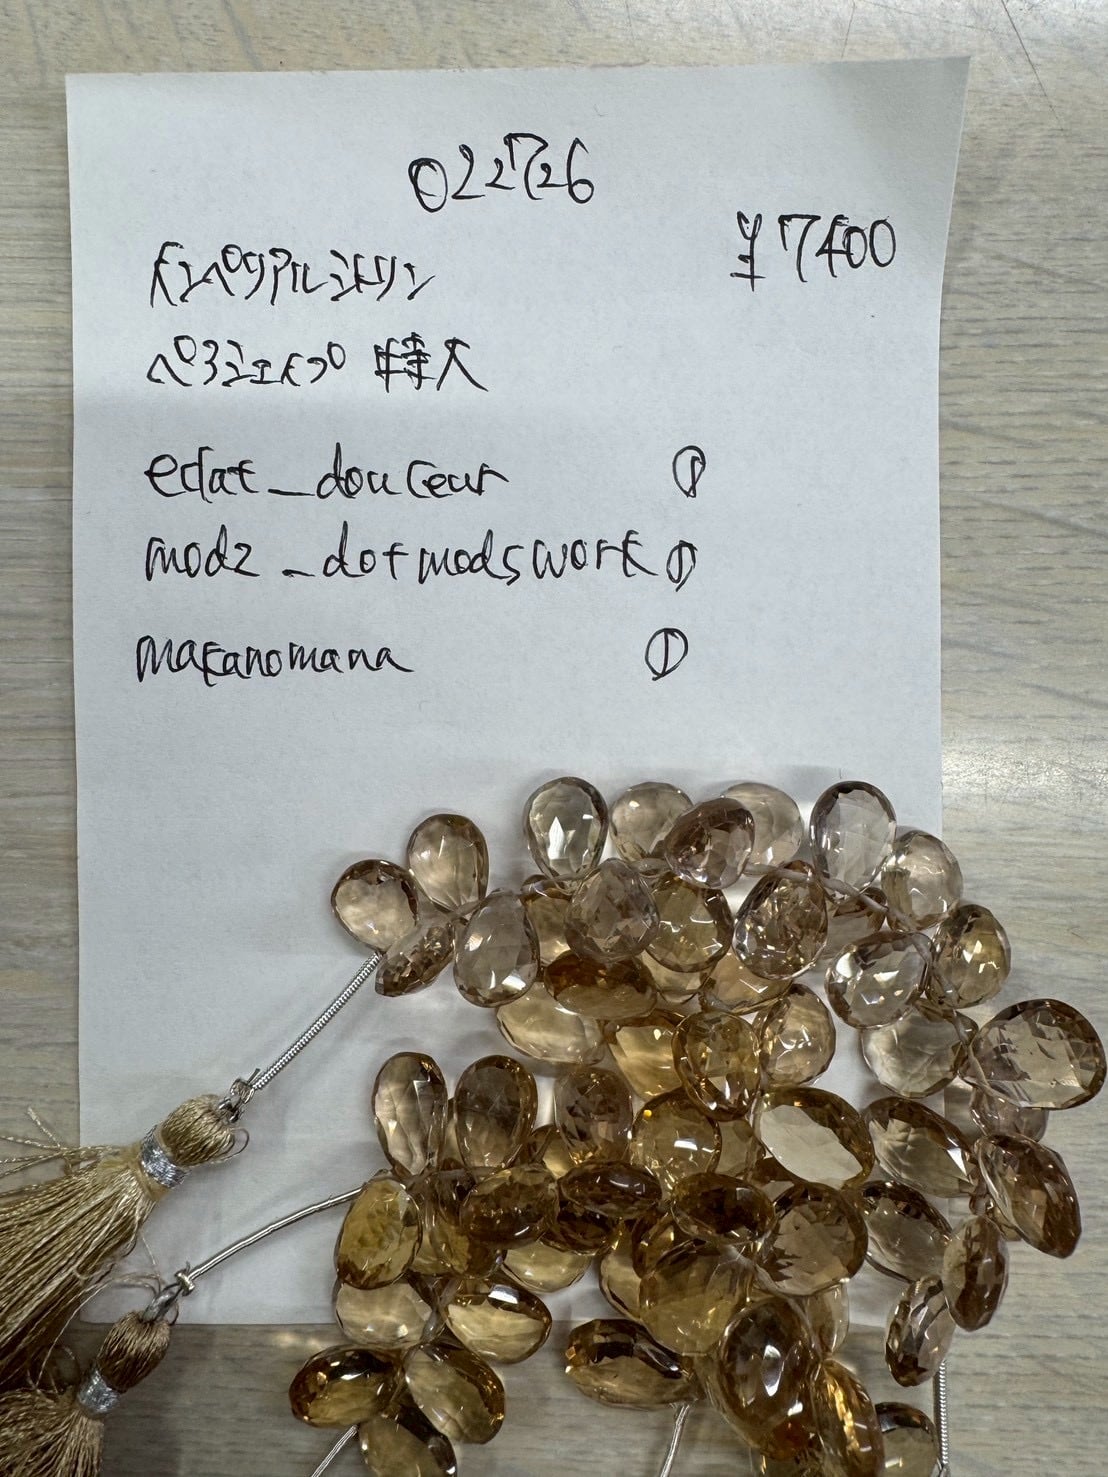 022726
¥7400
インペリアルシトリン
ペアシェイプ 特大
eclat_douceur ①
modz_dotmodswork ①
makanomana ①